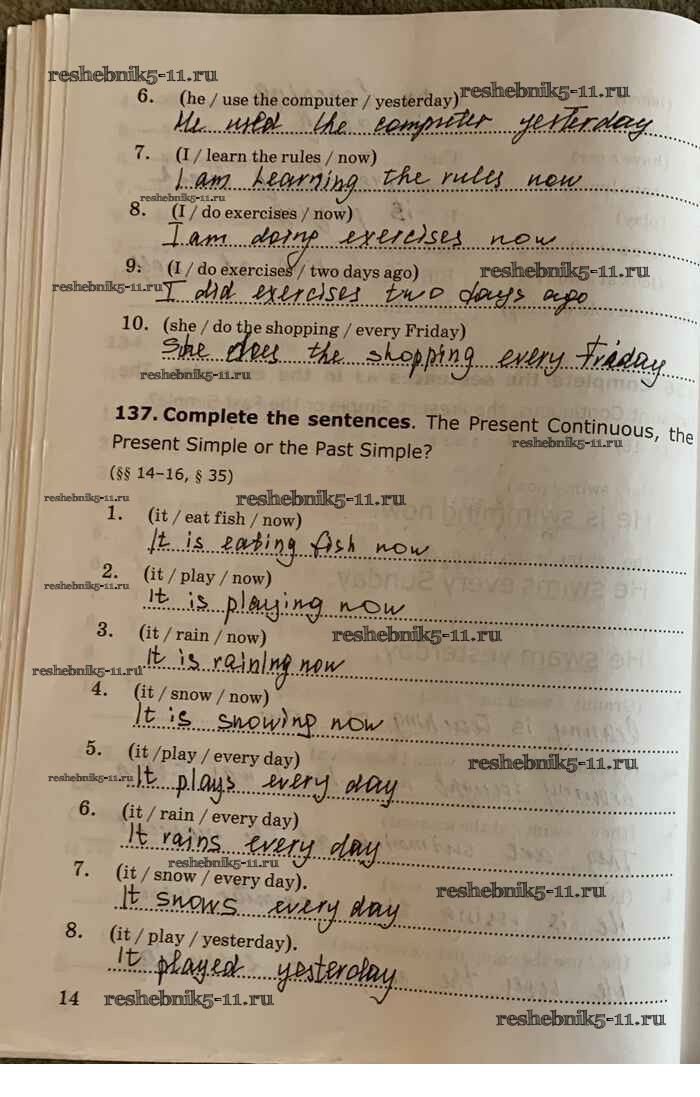 reshebnik5-11.ru
reshebnik5-11.ru
6. (he / use the computer / yesterday)
He used the computer yesterday
7. (I / learn the rules / now)
I am learning the rules now
reshebnik5-11.ru
8. (I / do exercises / now)
I am doing exercises now
9. (I / do exercises / two days ago)
reshebnik5-11.ru
reshebnik5-11.ru
I did exercises two days ago
10. (she / do the shopping / every Friday)
She does the shopping every Friday
reshebnik5-11.ru
137. Complete the sentences. The Present Continuous, the
Present Simple or the Past Simple?
reshebnik5-11.ru
(§§ 14–16, § 35)
reshebnik5-11.ru
reshebnik5-11.ru
1. (it / eat fish / now)
It is eating fish now
2. (it / play / now)
reshebnik5-11.ru
It is playing now
3. (it / rain / now)
reshebnik5-11.ru
It is raining now
reshebnik5-11.ru
4. (it / snow / now)
It is snowing now
5. (it /play / every day)
reshebnik5-11.ru
reshebnik5-11.ru
It plays every day
6. (it / rain / every day)
It rains every day
reshebnik5-11.ru
7. (it / snow / every day).
reshebnik5-11.ru
It snows every day
8. (it / play / yesterday).
It played yesterday
14
reshebnik5-11.ru
reshebnik5-11.ru